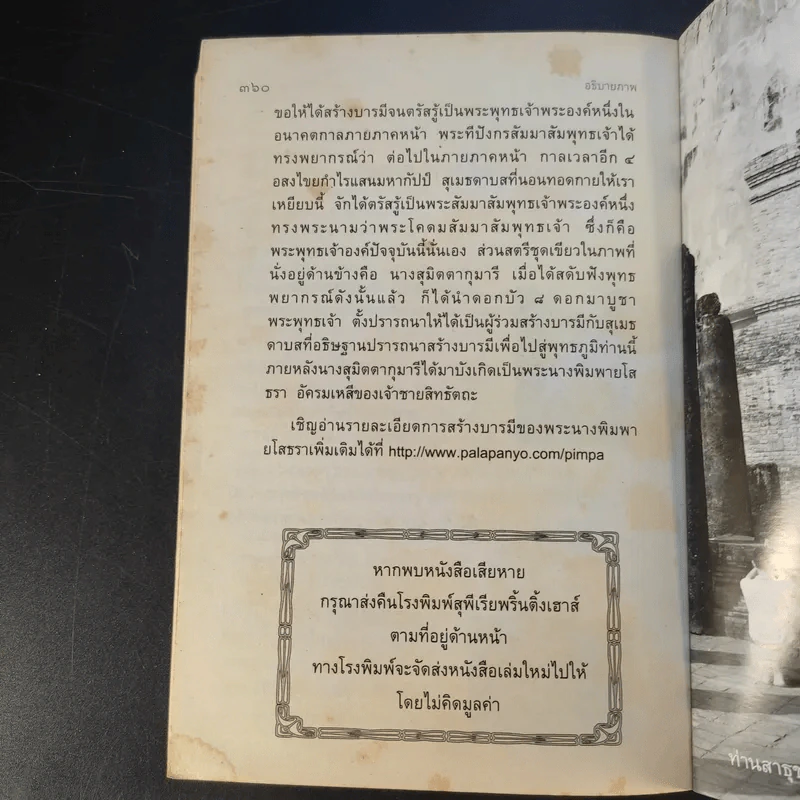 ๓๖๐
อธิบายภาพ
ขอให้ได้สร้างบารมีจนตรัสรู้เป็นพระพุทธเจ้าพระองค์หนึ่งใน
อนาคตกาลภายภาคหน้า พระทีปังกรสัมมาสัมพุทธเจ้าได้
ทรงพยากรณ์ว่า ต่อไปในภายภาคหน้า กาลเวลาอีก ๔
อสงไขยกำไรแสนมหากัปป์ สุเมธดาบสที่นอนทอดกายให้เรา
เหยียบนี้ จักได้ตรัสรู้เป็นพระสัมมาสัมพุทธเจ้าพระองค์หนึ่ง
ทรงพระนามว่าพระโคดมสัมมาสัมพุทธเจ้า ซึ่งก็คือ
พระพุทธเจ้าองค์ปัจจุบันนี้นั่นเอง ส่วนสตรีชุดเขียวในภาพที่
นั่งอยู่ด้านข้างคือ นางสุมิตตากุมารี เมื่อได้สดับฟังพุทธ
พยากรณ์ดังนั้นแล้ว ก็ได้นำดอกบัว ๘ ดอกมาบูชา
พระพุทธเจ้า ตั้งปรารถนาให้ได้เป็นผู้ร่วมสร้างบารมีกับสุเมธ
ดาบสที่อธิษฐานปรารถนาสร้างบารมีเพื่อไปสู่พุทธภูมิท่านนี้
ภายหลังนางสุมิตตากุมารีได้มาบังเกิดเป็นพระนางพิมพายโส
ธรา อัครมเหสีของเจ้าชายสิทธัตถะ
เชิญอ่านรายละเอียดการสร้างบารมีของพระนางพิมพา
ยโสธราเพิ่มเติมได้ที่ http://www.palapanyo.com/pimpa
หากพบหนังสือเสียหาย
กรุณาส่งคืนโรงพิมพ์สุพีเรียพริ้นติ้งเฮาส์
ตามที่อยู่ด้านหน้า
ทางโรงพิมพ์จะจัดส่งหนังสือเล่มใหม่ไปให้
โดยไม่คิดมูลค่า